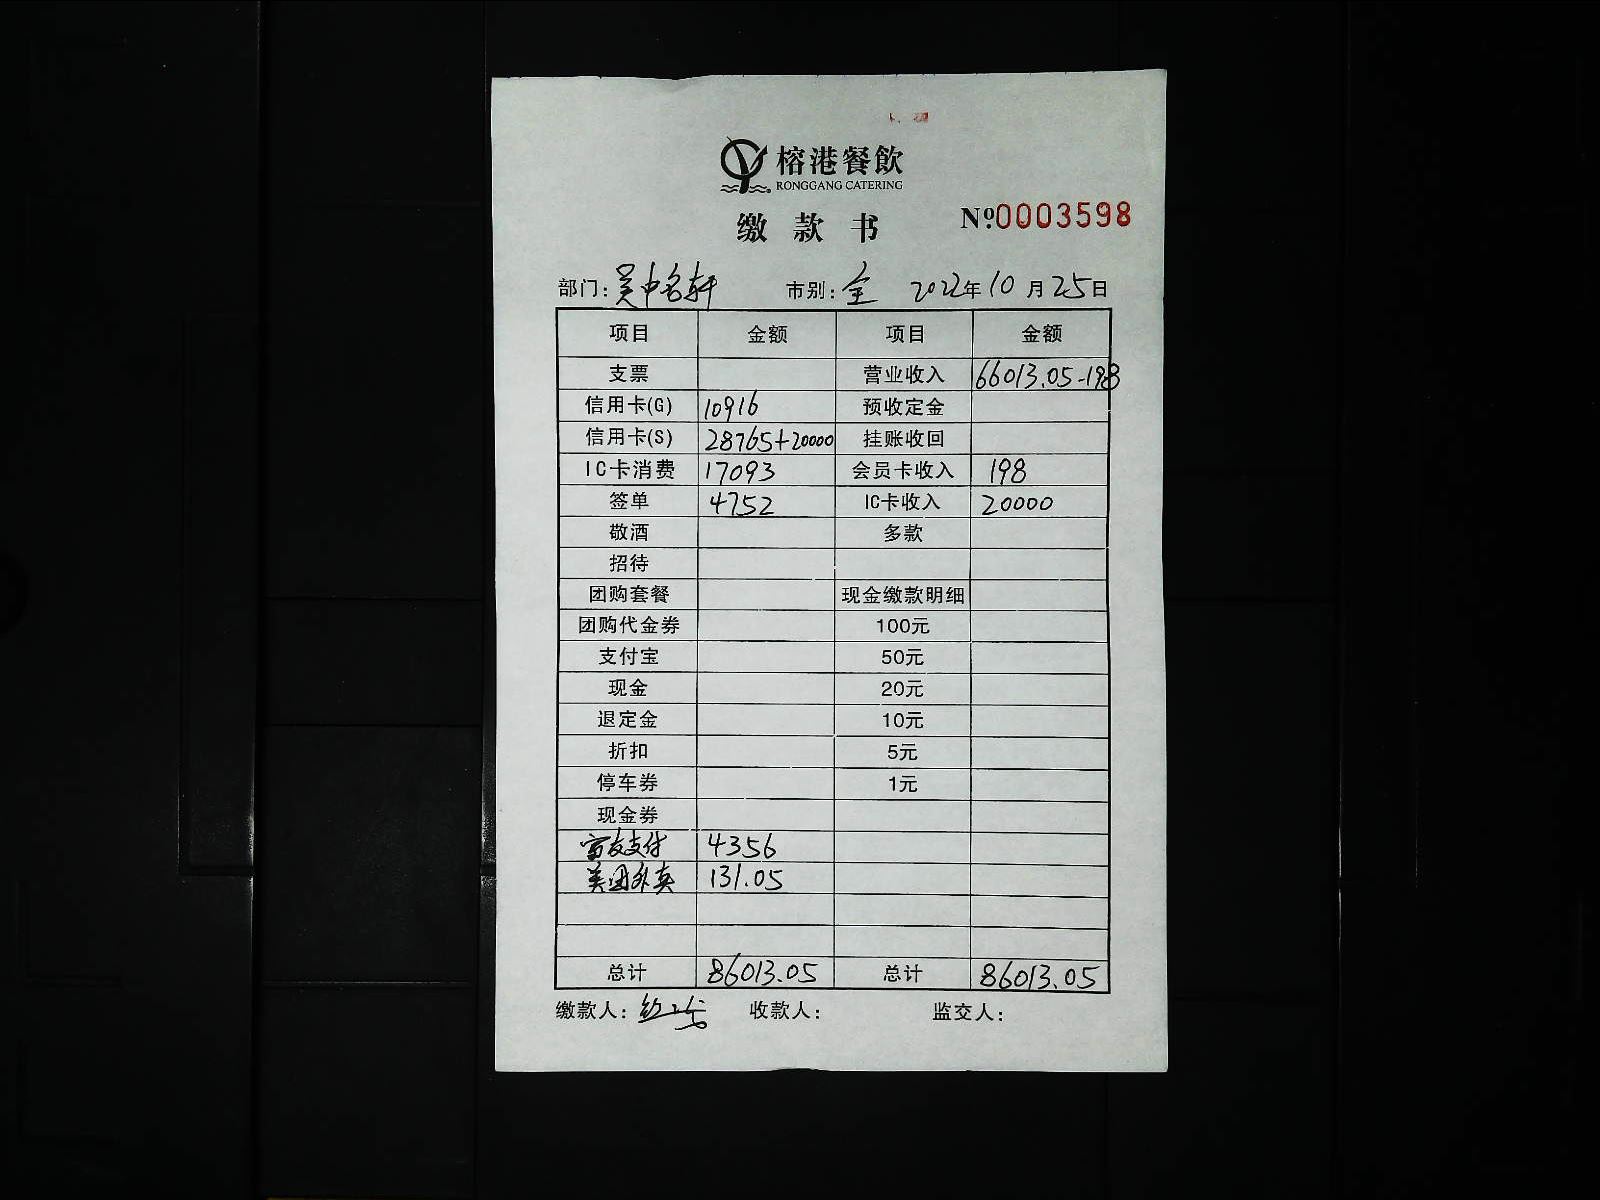 榕港餐飲
RONGGANG CATERING
缴款书 №0003598
部门：吴中名轩 市别：全 2022年10月25日
项目 金额 项目 金额
支票 营业收入 66013.05-198
信用卡(G) 10916 预收定金
信用卡(S) 28765+20000 挂账收回
IC卡消费 17093 会员卡收入 198
签单 4752 IC卡收入 20000
敬酒 多款
招待
团购套餐 现金缴款明细
团购代金券 100元
支付宝 50元
现金 20元
退定金 10元
折扣 5元
停车券 1元
现金券
富友支付 4356
美团外卖 131.05
总计 86013.05 总计 86013.05
缴款人： 收款人： 监交人：